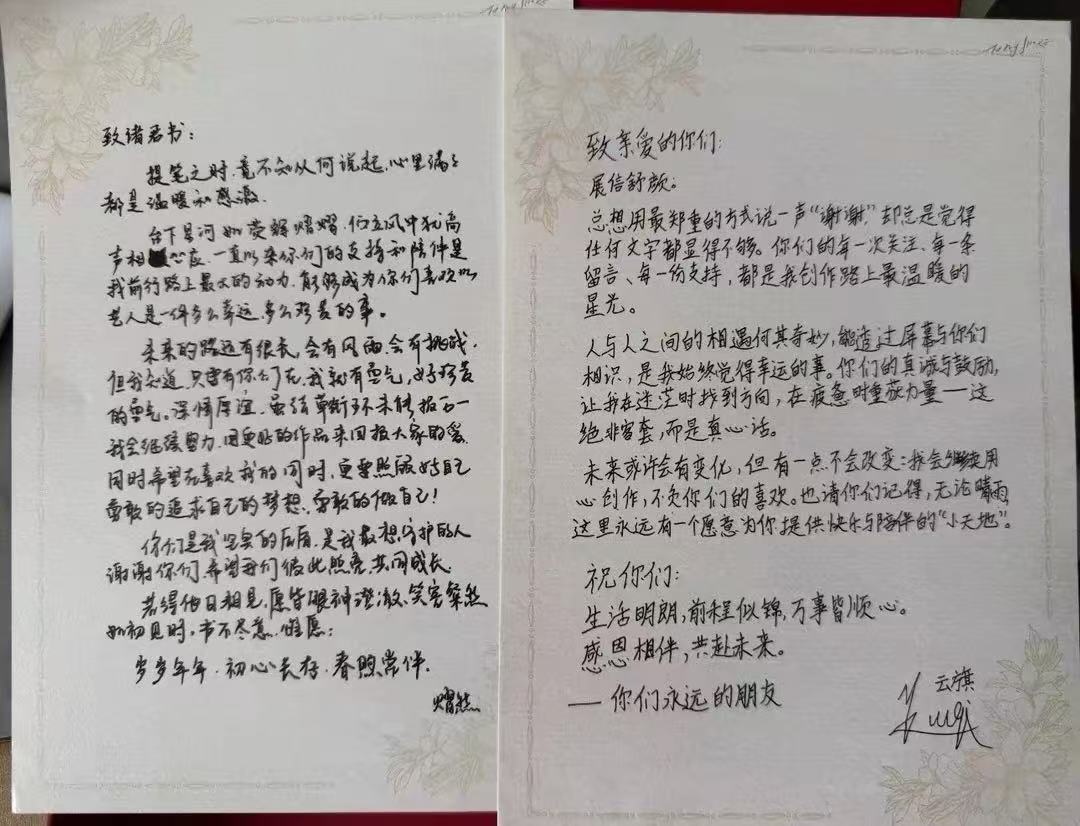 致诸君书：
提笔之时，竟不知从何说起，心里满满
都是温暖和感激。
台下星河如荧辉熠熠，你立风中犹高
声相心应，一直以来你们的支持和陪伴是
我前行路上最大的动力，能够成为你们喜欢的
艺人是一件多么幸运，多么珍贵的事。
未来的路还有很长，会有风雨，会有挑战，
但我知道，只要有你们在，我就有勇气，好珍贵
的勇气。深情厚谊，虽结草断环未能报万一
我会继续努力，用更好的作品来回报大家的爱
同时希望在喜欢我的同时，更要照顾好自己
勇敢的追求自己的梦想，勇敢的做自己！
你们是我坚实的后盾，是我最想守护的人
谢谢你们，希望我们彼此照亮，共同成长
若得他日相见，愿皆眼神澄澈，笑容粲然
如初见时，书不尽意，惟愿：
岁岁年年，初心长存，春煦常伴。
熠然
致亲爱的你们：
展信舒颜。
总想用最郑重的方式说一声“谢谢”，却总是觉得
任何文字都显得不够。你们的每一次关注、每一条
留言、每一份支持，都是我创作路上最温暖的
星光。
人与人之间的相遇何其奇妙，能透过屏幕与你们
相识，是我始终觉得幸运的事。你们的真诚与鼓励，
让我在迷茫时找到方向，在疲惫时重获力量——这
绝非客套，而是真心话。
未来或许会有变化，但有一点不会改变：我会继续用
心创作，不负你们的喜欢。也请你们记得，无论晴雨，
这里永远有一个愿意为你提供快乐与陪伴的“小天地”。
祝你们：
生活明朗，前程似锦，万事皆顺心。
感恩相伴，共赴未来。
——你们永远的朋友
云旗